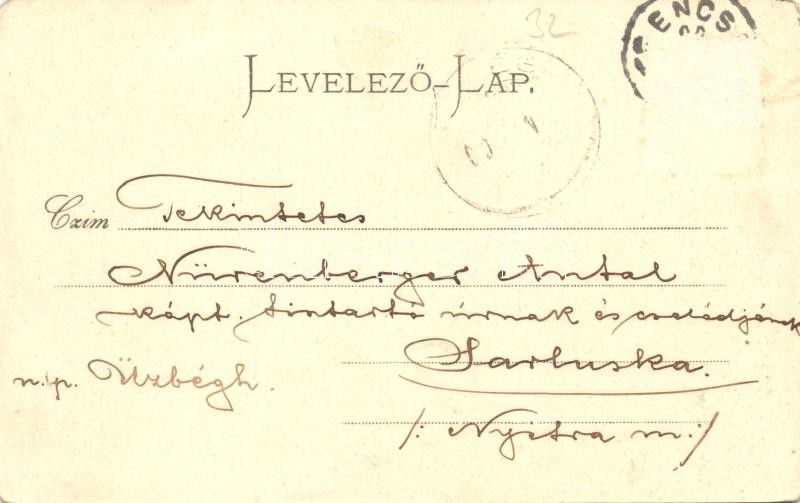 32
ENCS
LEVELEZŐ-LAP.
Czim Tekintetes
Nürenberger Antal
kápt. tintartó úrnak és családjának
Sarluska.
n. p. Üzbégh.
/: Nyitra m :/